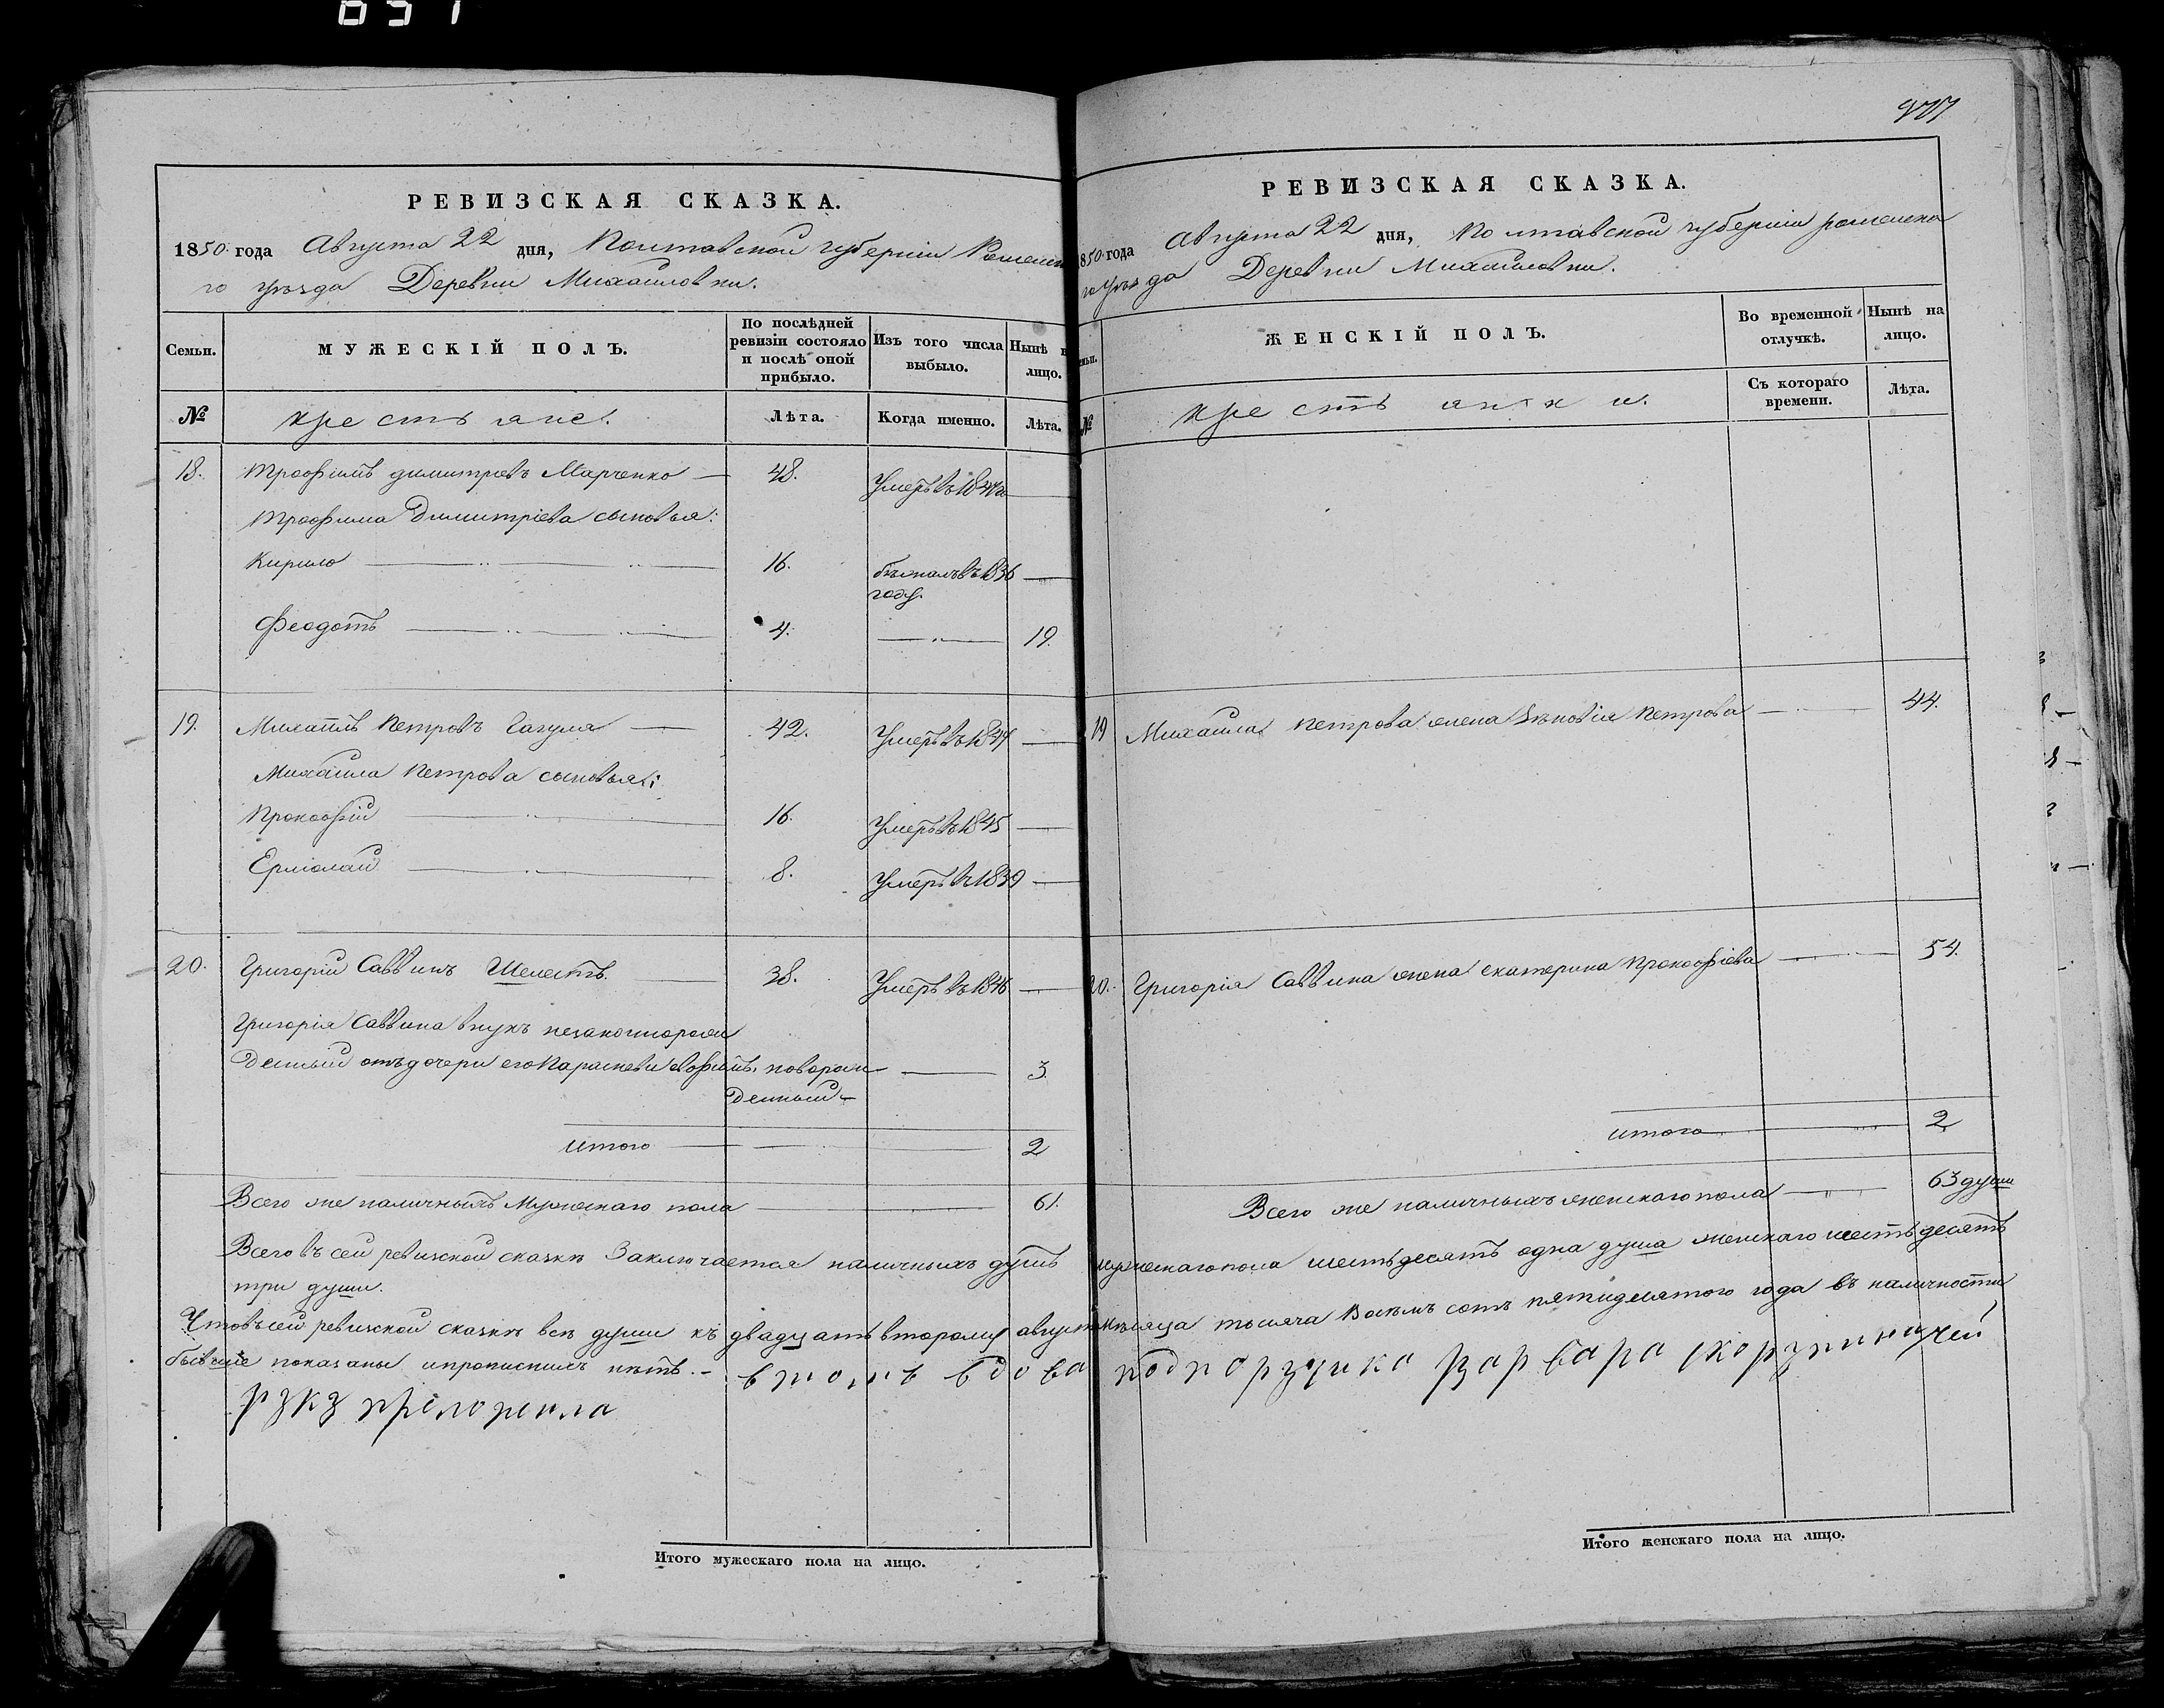 РЕВИЗСКАЯ СКАЗКА.
1850 года Августа 22 дня, Полтавской губерніи Роменска
го уѣзда Деревни Михайловки.
Семьи.
МУЖЕСКІЙ ПОЛЪ.
По послѣдней ревизіи состояло и послѣ оной прибыло.
Изъ того числа выбыло.
Нынѣ н
лицо.
№
крестьяне.
Лѣта.
Когда именно.
Лѣта.
18. Трофимъ димитревъ Марченко — 48. Умеръ въ
Трофима Димитріева сыновья:
Кирило 16. бѣжалъ въ 1836 году.
Феодотъ 4. — 19.
19. Михаилъ Петровъ — 42. Умеръ въ 1847
Михаила Петрова сыновья:
Прокофій 16. Умеръ въ 1845
Ермолай 8. Умеръ въ 1839
20. Григорій Саввинъ Шелестъ. 38. Умеръ въ 1846
Григорія Саввина внукъ незаконнорож
денный отъ дочери его Парасковіи новорож
денный — 3.
Итого 2
Всего же наличныхъ Мужескаго пола 61.
Всего въ сей ревизской сказкѣ Заключается наличныхъ душъ
три души.
Что въ сей ревизской сказкѣ всѣ души къ двадцать второму август
бывшіе показаны и прописныхъ нѣтъ. – втомъ вдова
руку приложила
Итого мужескаго пола на лицо.
РЕВИЗСКАЯ СКАЗКА.
850 года Августа 22 дня, Полтавской губерніи роменска
го уѣзда Деревни Михайловки.
ЖЕНСКІЙ ПОЛЪ.
Во временной отлучкѣ.
Нынѣ на лицо.
№
крестьянки.
Съ котораго времени.
Лѣта.
19 Михаила Петрова жена Петрова 44.
20. Григорія Саввина жена Екатерина Прокофіева 54.
Итого 2
Всего же наличныхъ женскаго пола 63 души
мужескаго пола шестьдесятъ одна душа женскаго шестьдесятъ
мѣсяца тысяча восемъ сотъ пятидесятого года въ наличности
подпоручика
Итого женскаго пола на лицо.